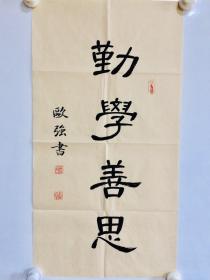 勤學善思
歐強書